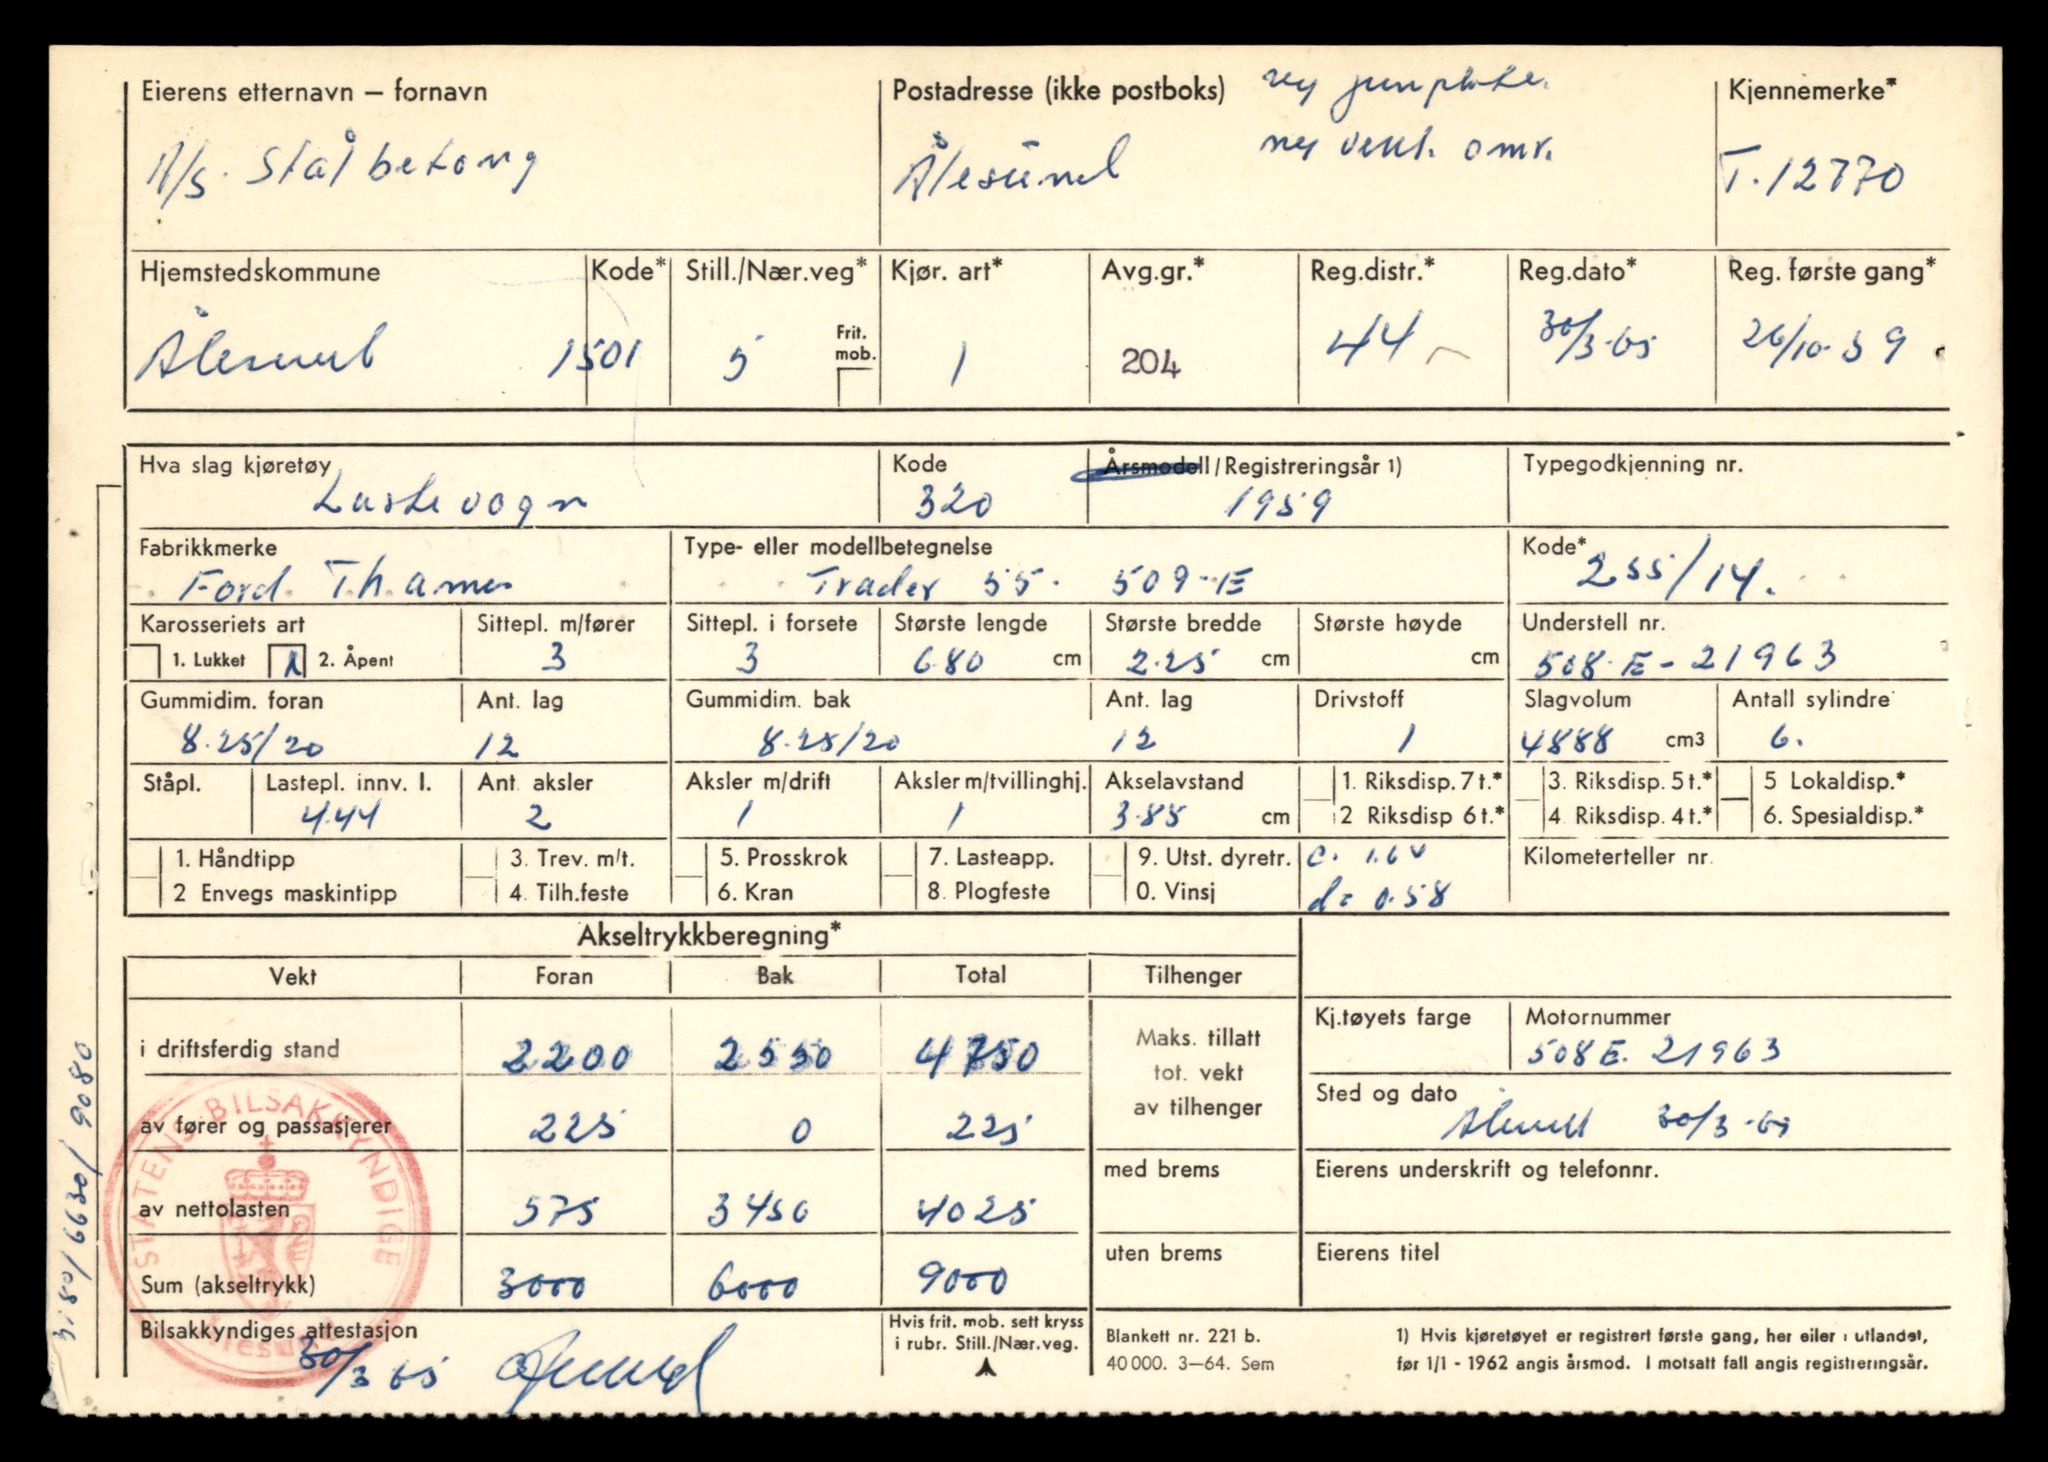 Eierens etternavn – fornavn
A/s. Stålbetong
Postadresse (ikke postboks)
ny
ny vekt. omr.
Ålesund
Kjennemerke*
T.12770
Hjemstedskommune
Ålesund
Kode*
1501
Still./Nær.veg*
5
Frit.
mob.
Kjør. art*
1
Avg.gr.*
204
Reg.distr.*
44
Reg.dato*
30/3-65
Reg. første gang*
26/10-59
Hva slag kjøretøy
Lastevogn
Kode
320
Årsmodell/Registreringsår 1)
1959
Typegodkjenning nr.
Fabrikkmerke
Ford Thames
Type- eller modellbetegnelse
Trader 55. 509-E
Kode*
255/14.
Karosseriets art
1. Lukket
2. Åpent
Sittepl. m/fører
3
Sittepl. i forsete
3
Største lengde
680 cm
Største bredde
2.25 cm
Største høyde
cm
Understell nr.
508.E-21963
Gummidim. foran
8.25/20
Ant. lag
12
Gummidim. bak
8.25/20
Ant. lag
12
Drivstoff
1
Slagvolum
4888 cm3
Antall sylindre
6.
Ståpl.
Lastepl. innv. l.
4.44
Ant. aksler
2
Aksler m/drift
1
Aksler m/tvillinghj.
1
Akselavstand
3.85 cm
1. Riksdisp. 7 t.*
2 Riksdisp 6 t.*
3. Riksdisp. 5 t.*
4. Riksdisp. 4 t.*
5 Lokaldisp.*
6. Spesialdisp.*
1. Håndtipp
2 Envegs maskintipp
3. Trev. m/t.
4. Tilh.feste
5. Prosskrok
6. Kran
7. Lasteapp.
8. Plogfeste
9. Utst. dyretr.
0. Vinsj
c. 1.60
d= 0.58
Kilometerteller nr.
Akseltrykkberegning*
Vekt Foran Bak Total Tilhenger
i driftsferdig stand 2200 2550 4750
Maks. tillatt
tot. vekt
av tilhenger
av fører og passasjerer 225 0 225
av nettolasten 575 3450 4025
med brems
uten brems
Sum (akseltrykk) 3000 6000 9000
Kj.tøyets farge
Motornummer
508E. 21963
Sted og dato
Ålesund 30/3-65
Eierens underskrift og telefonnr.
Eierens titel
Bilsakkyndiges attestasjon
30/3 65
Hvis frit. mob. sett kryss
i rubr. Still./Nær.veg.
Blankett nr. 221 b.
40 000. 3–64. Sem
1) Hvis kjøretøyet er registrert første gang, her eller i utlandet,
før 1/1 - 1962 angis årsmod. I motsatt fall angis registreringsår.
STATENS BILSAKKYNDIGE
Ålesund
3180/6630/9080